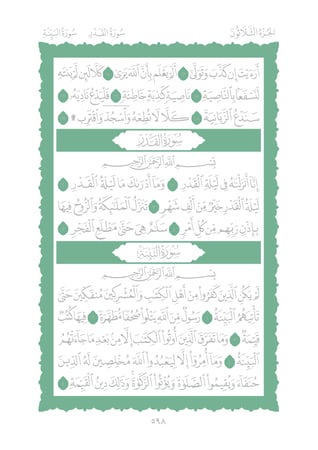 الجزء الثلاثون سورة القدر سورة البينة
أَرَءَيْتَ إِن كَذَّبَ وَتَوَلَّىٰ ۝ أَلَمْ يَعْلَم بِأَنَّ ٱللَّهَ يَرَىٰ ۝ كَلَّا لَئِن لَّمْ يَنتَهِ
لَنَسْفَعًۢا بِٱلنَّاصِيَةِ ۝ نَاصِيَةٍ كَٰذِبَةٍ خَاطِئَةٍ ۝ فَلْيَدْعُ نَادِيَهُۥ ۝
سَنَدْعُ ٱلزَّبَانِيَةَ ۝ كَلَّا لَا تُطِعْهُ وَٱسْجُدْ وَٱقْتَرِب ۩ ۝
سُورَةُ القَدْرِ
بِسْمِ ٱللَّهِ ٱلرَّحْمَٰنِ ٱلرَّحِيمِ
إِنَّآ أَنزَلْنَٰهُ فِى لَيْلَةِ ٱلْقَدْرِ ۝ وَمَآ أَدْرَىٰكَ مَا لَيْلَةُ ٱلْقَدْرِ ۝
لَيْلَةُ ٱلْقَدْرِ خَيْرٌ مِّنْ أَلْفِ شَهْرٍ ۝ تَنَزَّلُ ٱلْمَلَٰٓئِكَةُ وَٱلرُّوحُ فِيهَا
بِإِذْنِ رَبِّهِم مِّن كُلِّ أَمْرٍ ۝ سَلَٰمٌ هِىَ حَتَّىٰ مَطْلَعِ ٱلْفَجْرِ ۝
سُورَةُ البَيِّنَةِ
بِسْمِ ٱللَّهِ ٱلرَّحْمَٰنِ ٱلرَّحِيمِ
لَمْ يَكُنِ ٱلَّذِينَ كَفَرُوا۟ مِنْ أَهْلِ ٱلْكِتَٰبِ وَٱلْمُشْرِكِينَ مُنفَكِّينَ حَتَّىٰ
تَأْتِيَهُمُ ٱلْبَيِّنَةُ ۝ رَسُولٌ مِّنَ ٱللَّهِ يَتْلُوا۟ صُحُفًا مُّطَهَّرَةً ۝ فِيهَا كُتُبٌ
قَيِّمَةٌ ۝ وَمَا تَفَرَّقَ ٱلَّذِينَ أُوتُوا۟ ٱلْكِتَٰبَ إِلَّا مِنۢ بَعْدِ مَا جَآءَتْهُمُ
ٱلْبَيِّنَةُ ۝ وَمَآ أُمِرُوٓا۟ إِلَّا لِيَعْبُدُوا۟ ٱللَّهَ مُخْلِصِينَ لَهُ ٱلدِّينَ
حُنَفَآءَ وَيُقِيمُوا۟ ٱلصَّلَوٰةَ وَيُؤْتُوا۟ ٱلزَّكَوٰةَ وَذَٰلِكَ دِينُ ٱلْقَيِّمَةِ ۝
٥٩٨